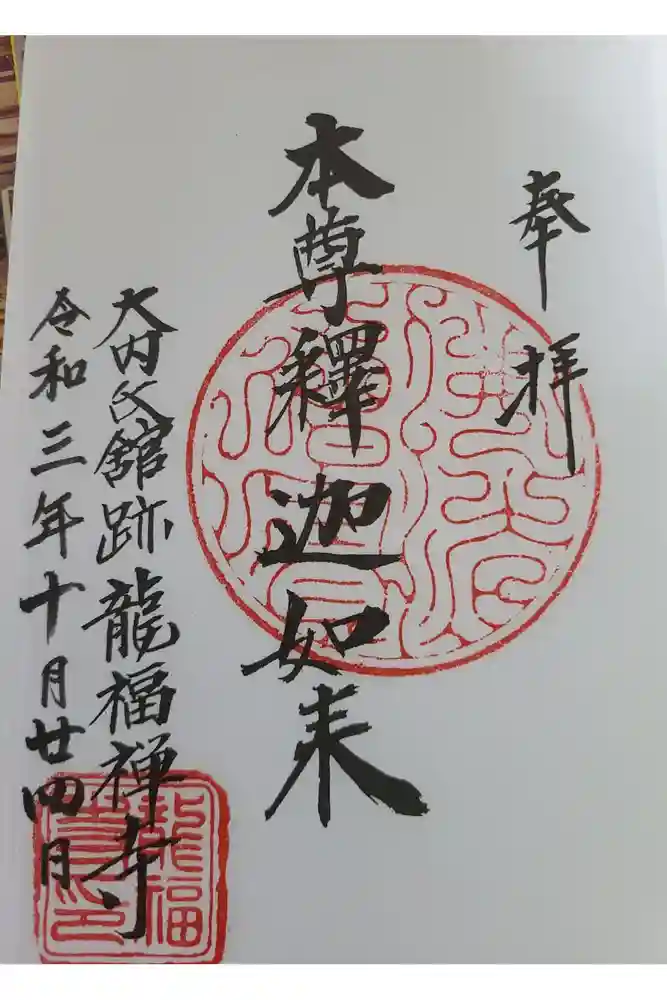 奉拝
本尊釋迦如来
大内氏舘跡龍福禅寺
令和三年十月廿四日
龍福